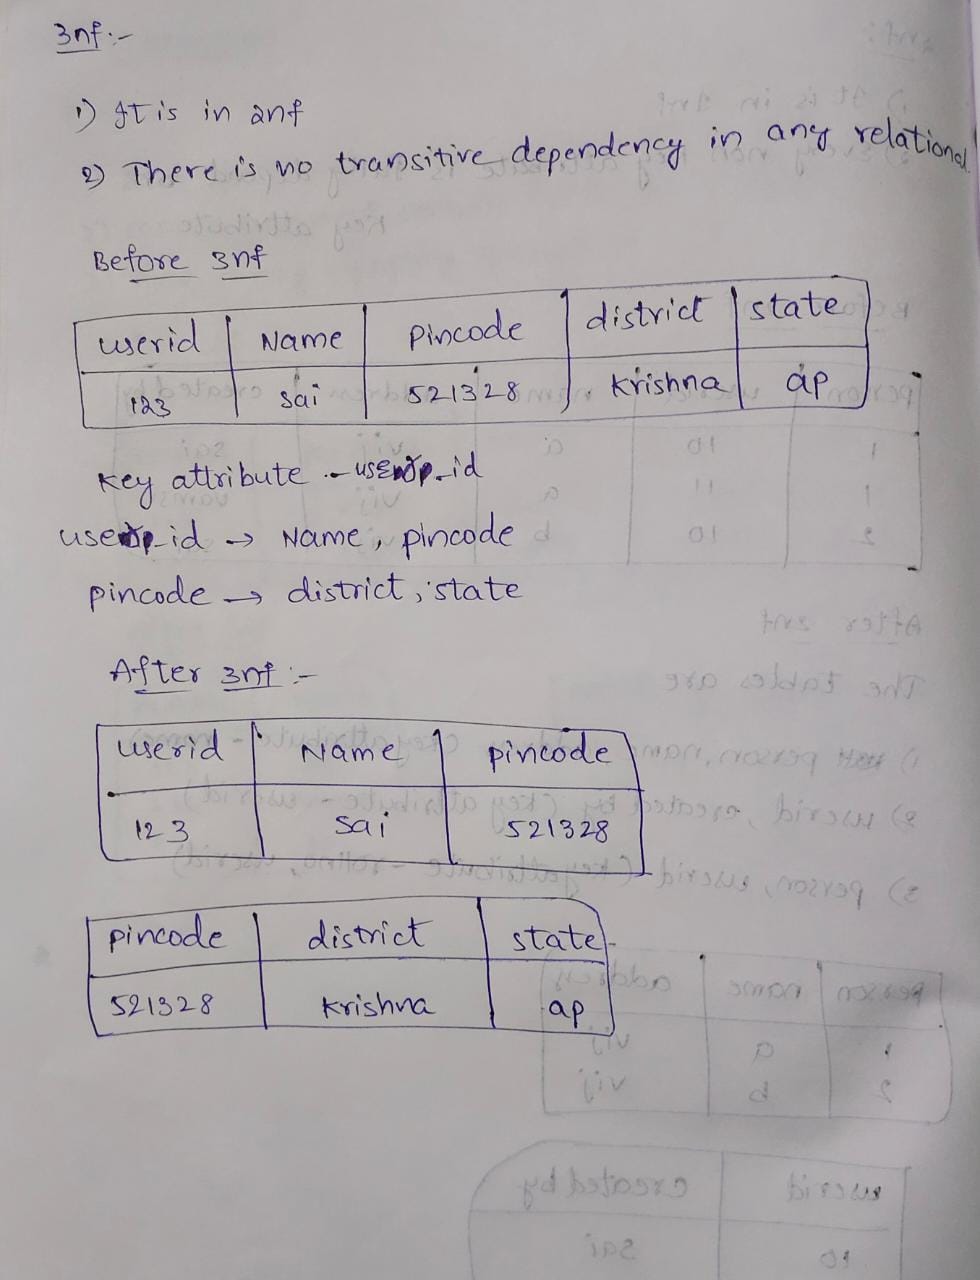 3nf:-
1) It is in 2nf
2) There is no transitive dependency in any relational.
Before 3nf
userid Name Pincode district state
123 sai 521328 Krishna ap
Key attribute - user_id
user_id → Name, pincode
pincode → district, state
After 3nf :-
userid Name pincode
123 sai 521328
pincode district state
521328 Krishna ap